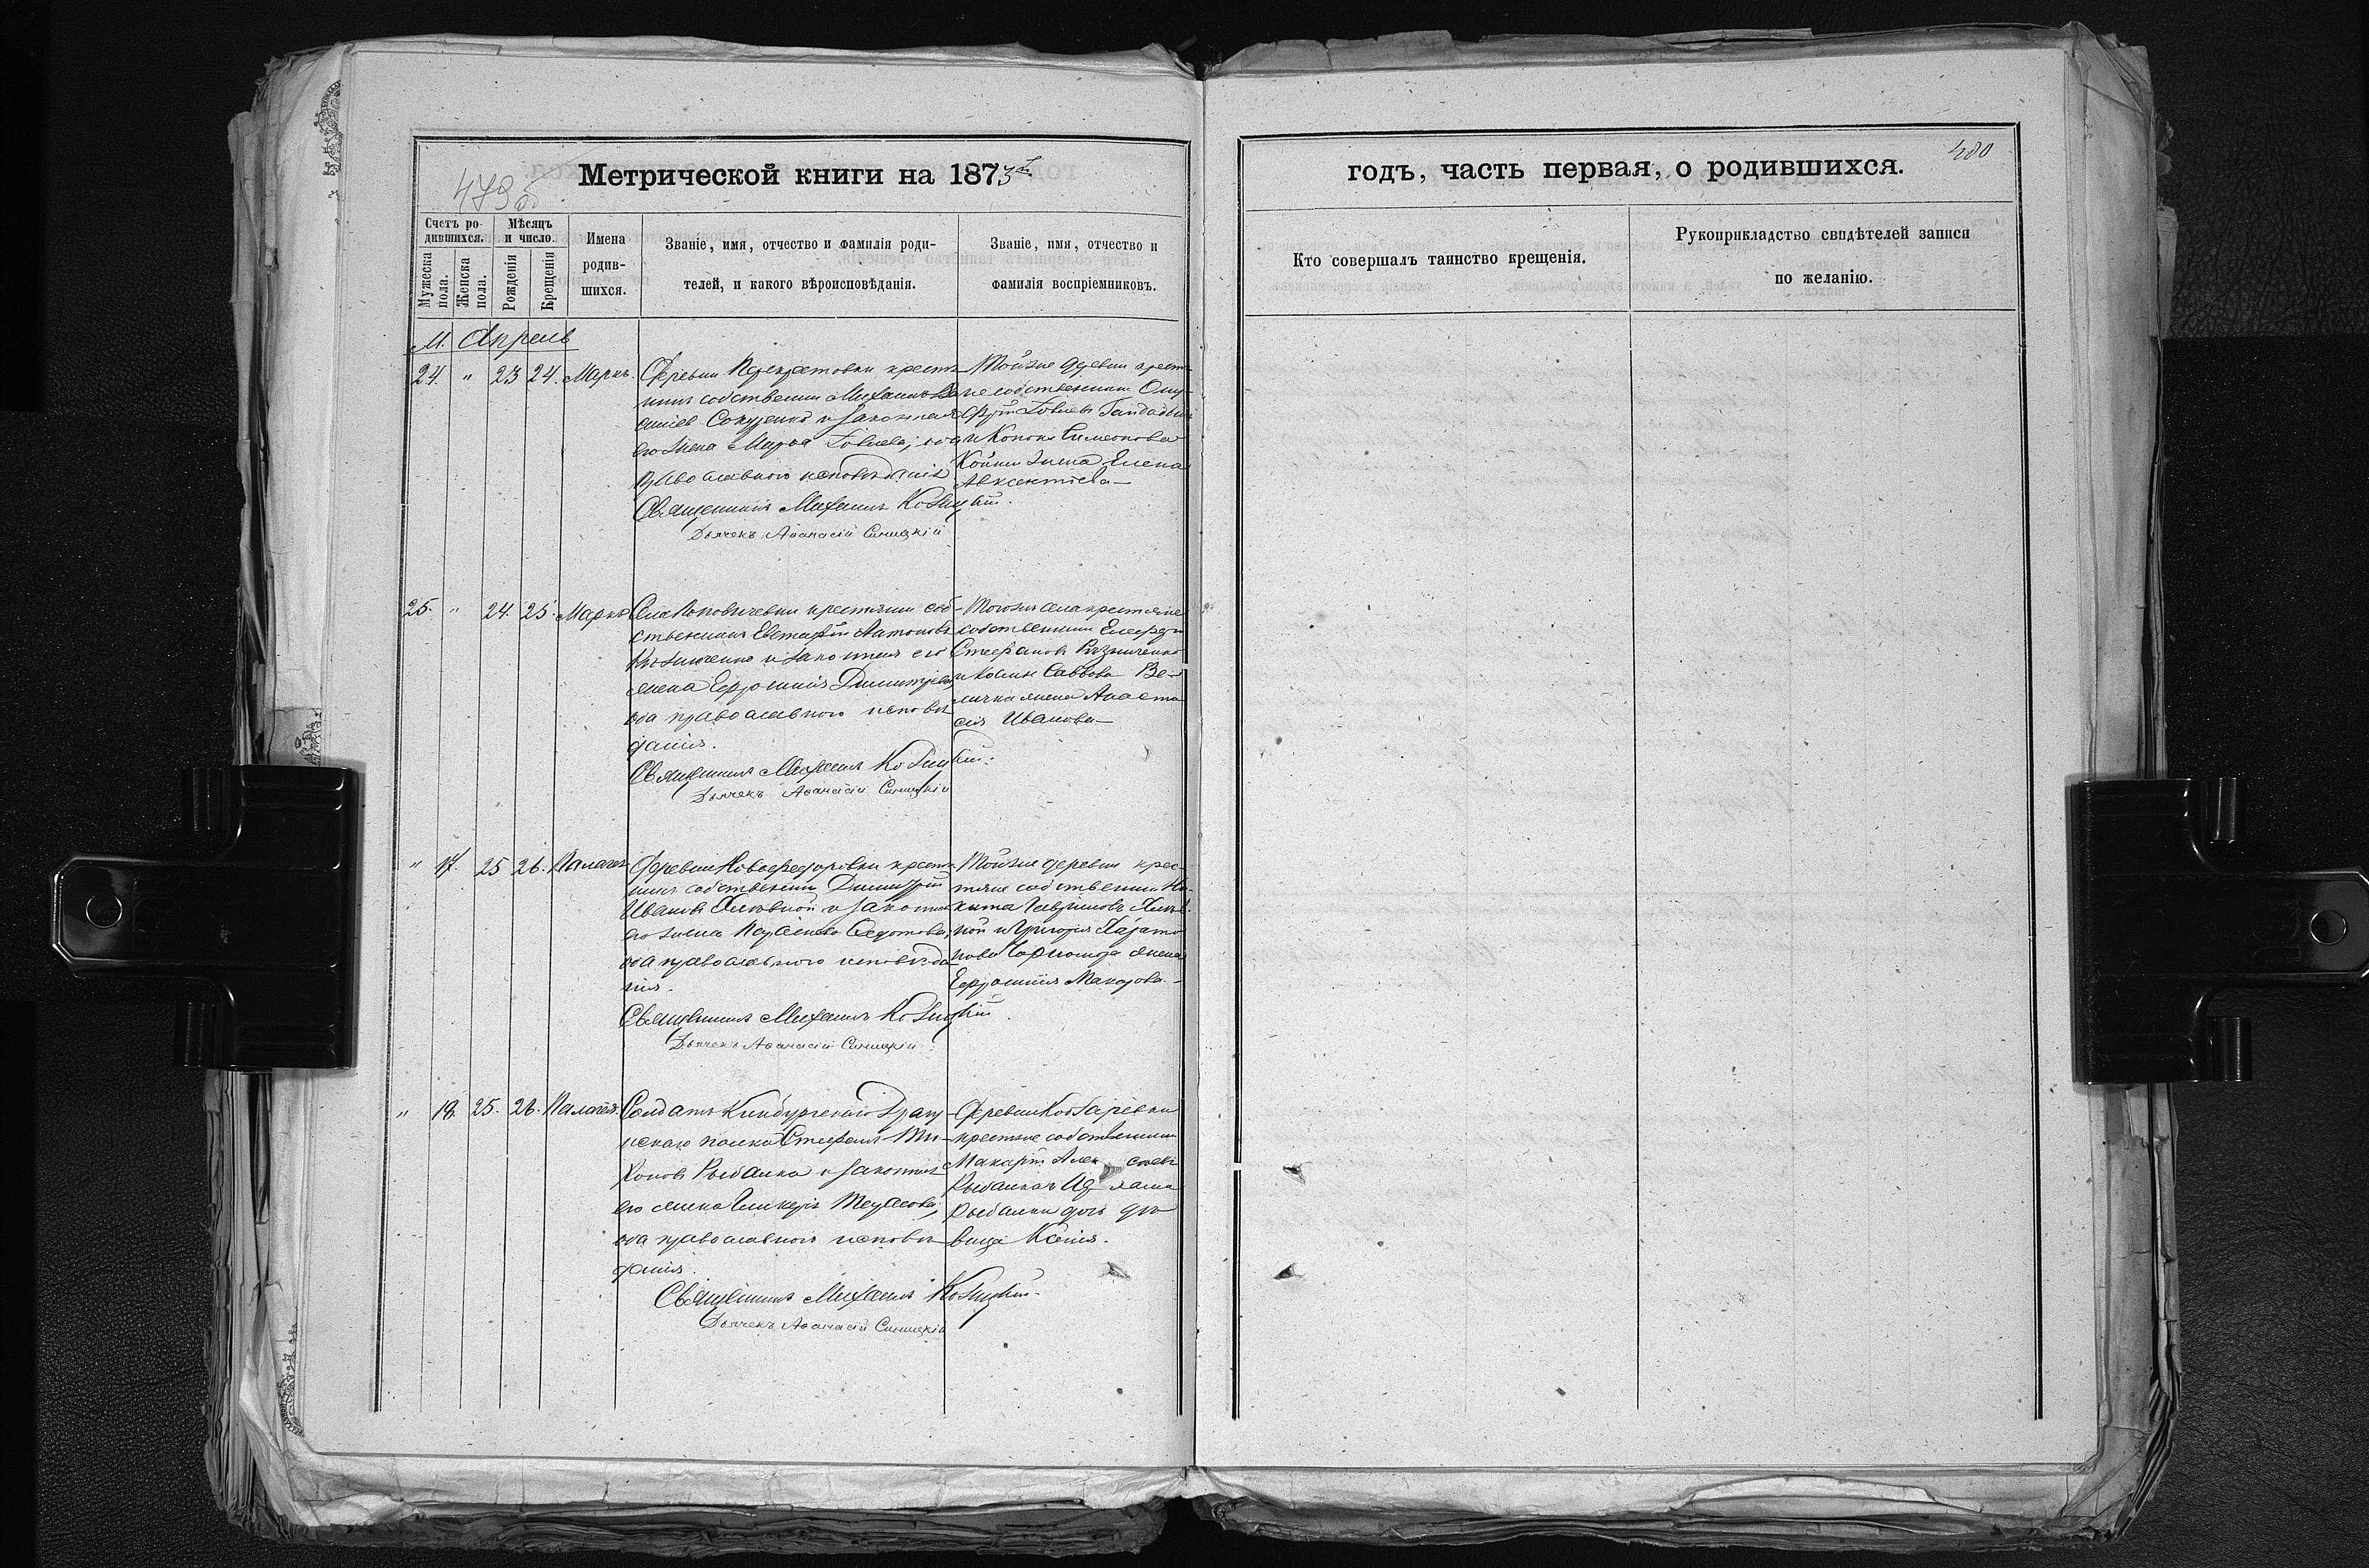 479 об
Метрической книги на 1873 й
Счетъ ро-
дившихся.
Мѣсяцъ
и число.
Мужеска
пола.
Женска
пола.
Рожденія
Крещенія
Имена
родив-
шихся.
Званіе, имя, отчество и фамилія роди-
телей, и какого вѣроисповѣданія.
Званіе, имя, отчество и
фамилія воспріемниковъ.
М. Апрель
24. " 23 24. Маркъ.
Деревни крестья-
нинъ собственникъ Михаилъ
и законная
его жена Марѳа Іовлева; оба
православного исповѣданія
Священникъ Михаилъ Козицкій.
Дьячекъ Аѳанасій Синицкій
Тойже деревни крестья-
не собственники
Іовлевъ
и Конона Симеонова
жена Елена
Авксентіева
25. " 24. 25. Марко
Села Поповичевки крестьянинъ соб-
ственникъ Евстафій Антоновъ
и законная его
жена Ефросинія Димитріева,
оба православного исповѣ-
данія.
Священникъ Михаилъ Козицкій.
Дьячекъ Аѳанасій Синицкій
Тогоже села крестьяне
собственники
Стефановъ
и Саввова Ве-
лички жена Анаста-
сія Иванова
" 17. 25 26. Палагея
Деревни Новофедоровки крестья-
нинъ собственникъ Димитрій
Ивановъ и законная
его жена Федотова,
оба православного исповѣда-
нія.
Священникъ Михаилъ Козицкій.
Дьячекъ Аѳанасій Синицкій
Тойже деревни крес-
тьяне собственники Ни-
кита Гавриловъ
и Григорія Харито-
нова жена
Ефросинія Макарова
" 18. 25. 26. Палагея.
Солдатъ Кинбургскаго Драгу-
нскаго полка Стефанъ Ти-
хоновъ Рыбалка и законная
его жена Гликерія Тарасова,
оба православного исповѣ-
данія.
Священникъ Михаилъ Козицкій.
Дьячекъ Аѳанасій Синицкій
Деревни Кобзаревки
крестьяне собственники
Макарій
Рыбалка и
Рыбалки дочь дѣ-
вица Ксенія.
480
годъ, часть первая, о родившихся.
Кто совершалъ таинство крещенія.
Рукоприкладство свидѣтелей записи
по желанію.